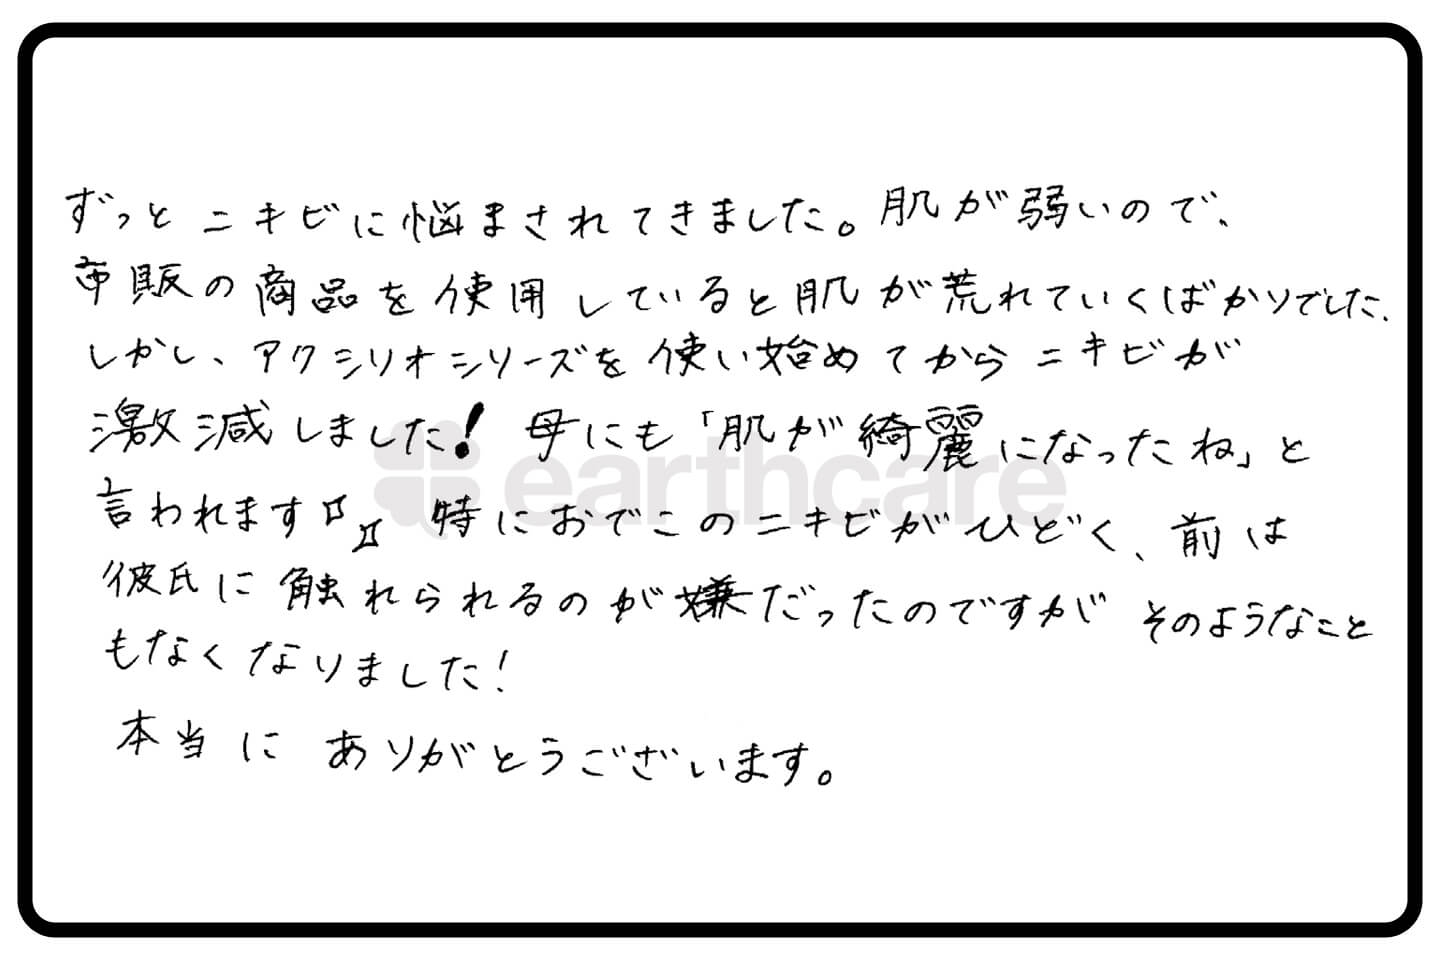 ずっとニキビに悩まされてきました。肌が弱いので、
市販の商品を使用していると肌が荒れていくばかりでした、
しかし、アクシリオシリーズを使い始めてからニキビが
激減しました! 母にも「肌が綺麗になったね」と
言われます♫ 特におでこのニキビがひどく、前は
彼氏に触れられるのが嫌だったのですが そのようなこと
もなくなりました!
本当に ありがとうございます。
earthcare